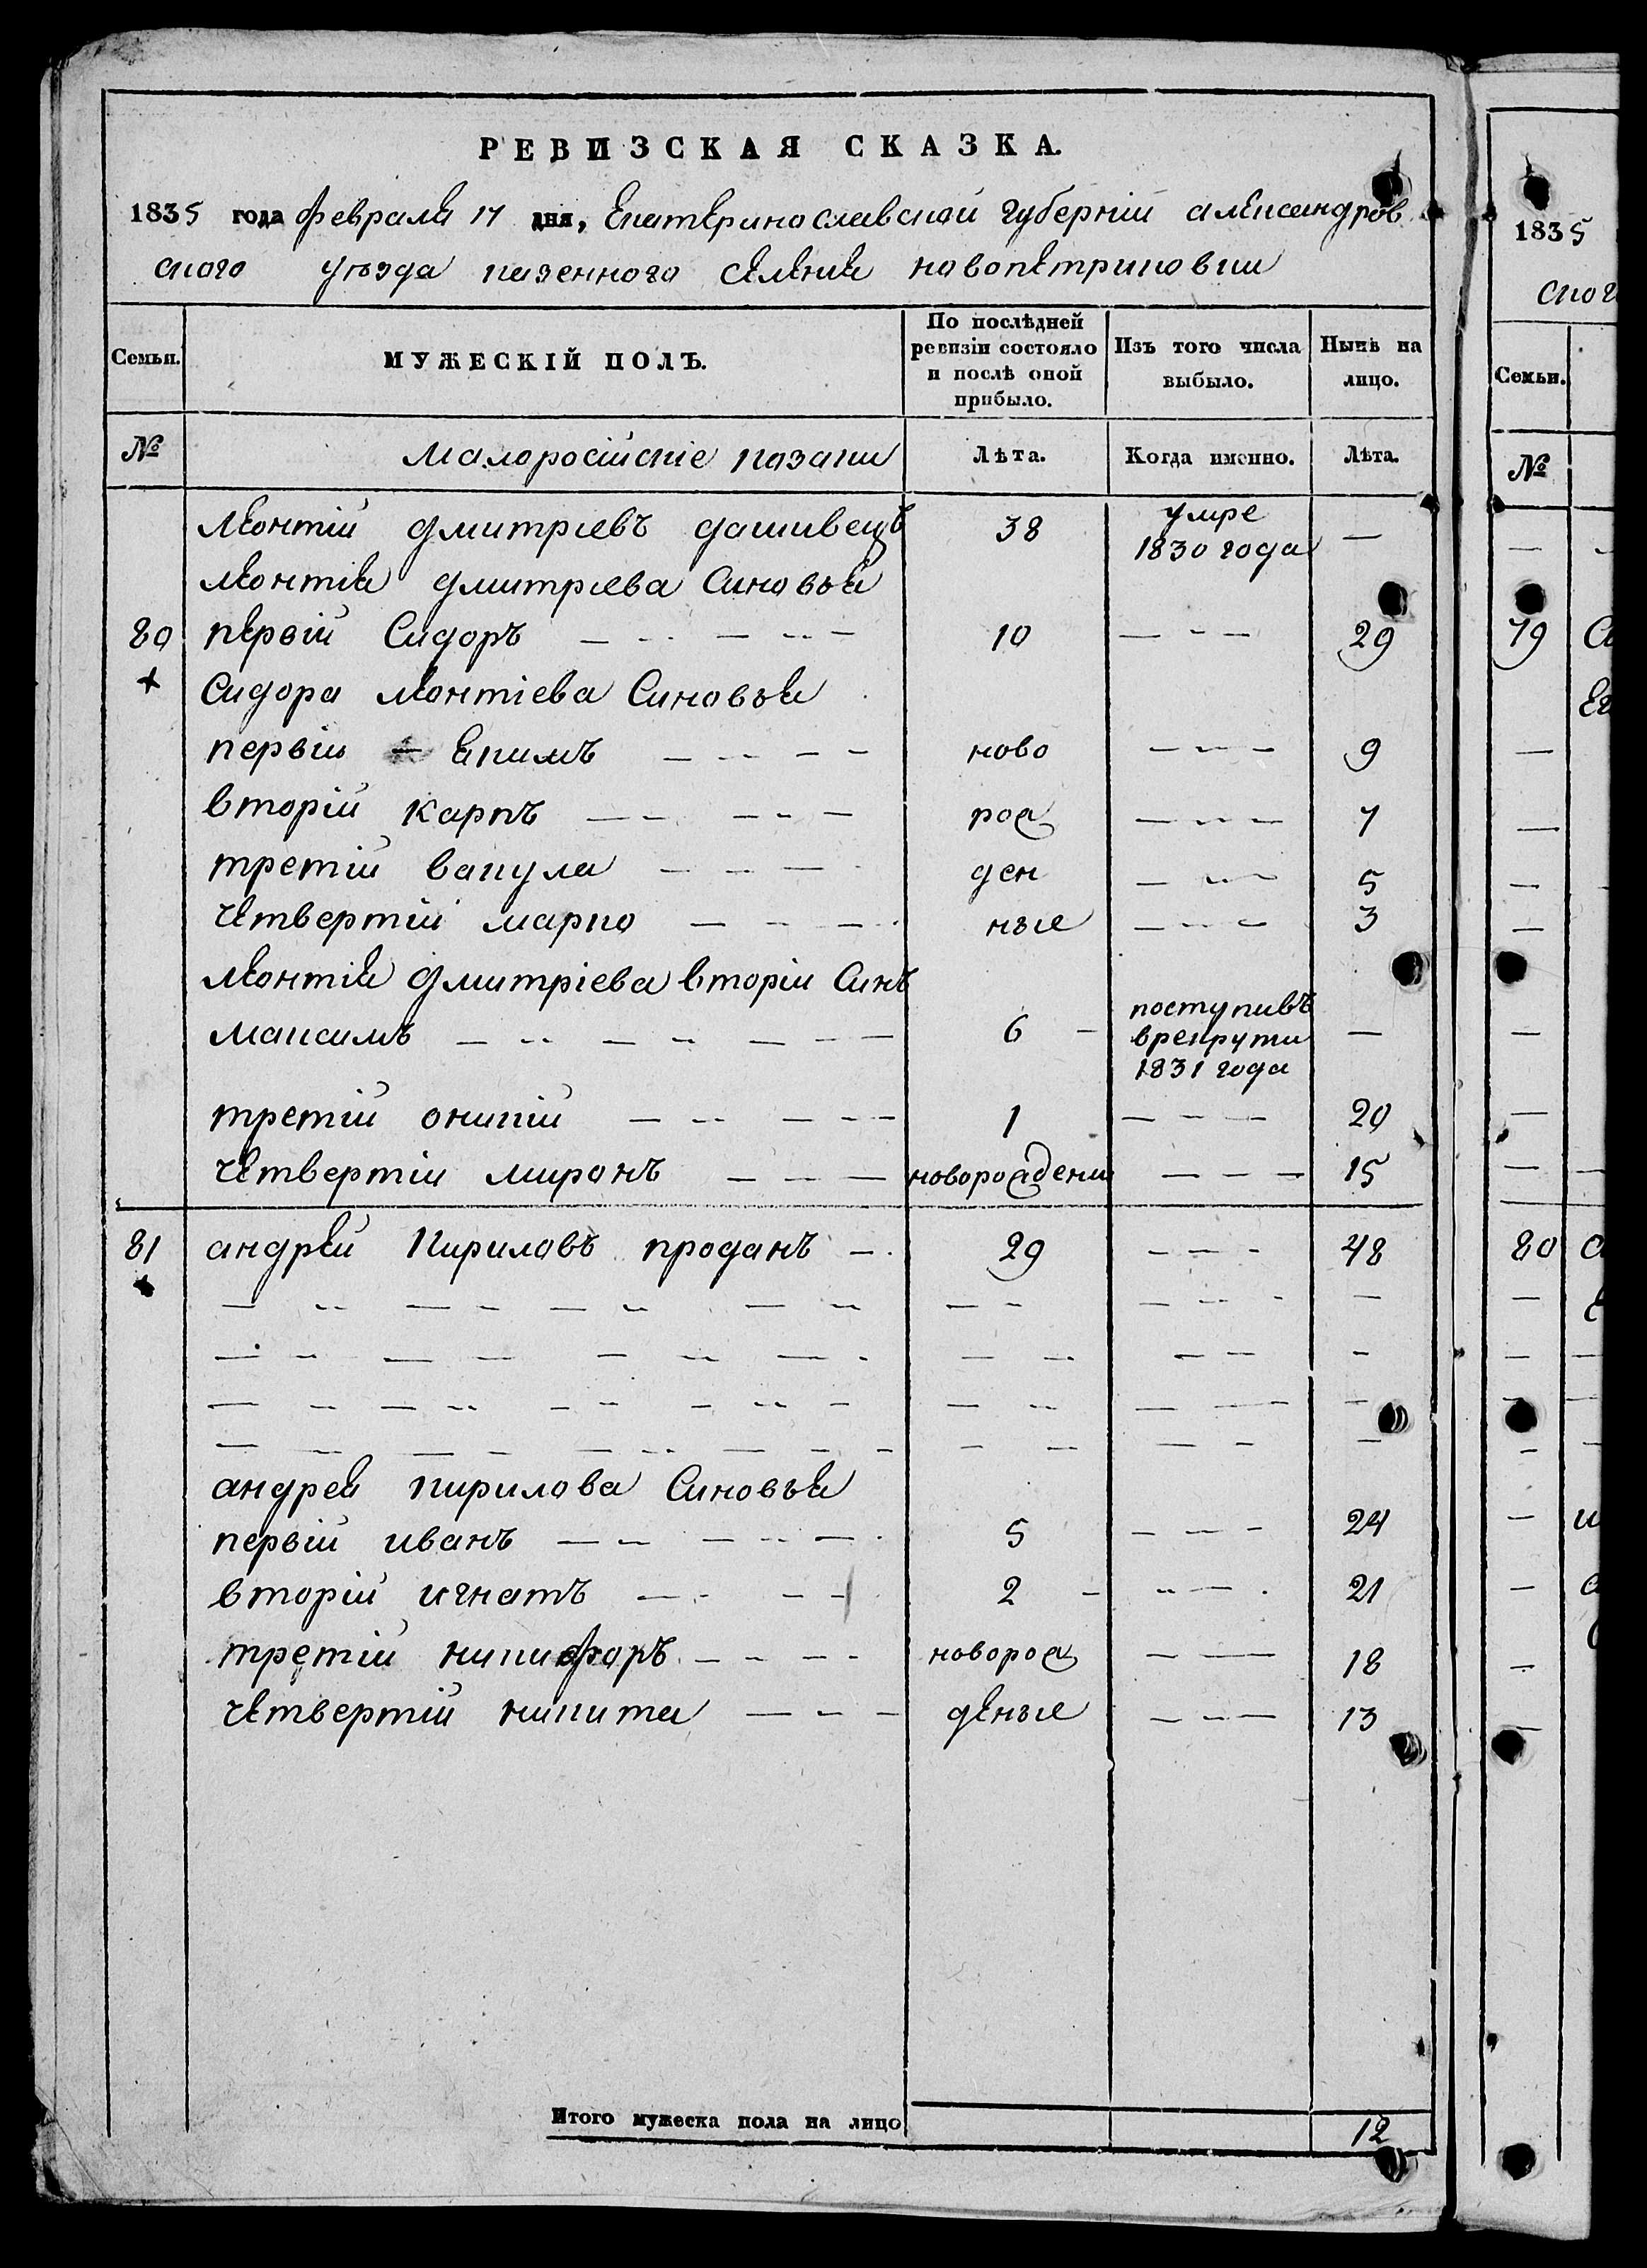 РЕВИЗСКАЯ СКАЗКА.
1835 года февраля 17 дня, Екатеринославской губерніи александров
ского уѣзда казенного селения новопетриковки
Семьи. МУЖЕСКІЙ ПОЛЪ. По послѣдней ревизіи состояло и послѣ оной прибыло. Изъ того числа выбыло. Нынѣ на лицо.
№ Малоросійскіе казаки Лѣта. Когда именно. Лѣта.
Леонтій дмитріевъ дашивецъ 38 умре 1830 года —
леонтия дмитріева Синовья
80 первій Сидоръ 10 — 29
Сидора леонтіева Синовья
первій екимъ ново — 9
вторій карпъ рож — 7
третій вакула ден — 5
четвертій марко ные — 3
леонтия дмитріева вторій Синъ
максимъ 6 поступивъ врекрути 1831 года —
третій оникій 1 — 20
четвертій миронъ новорождени — 15
81 андрей кириловъ проданъ 29 — 48
андрея кирилова Синовья
первій иванъ 5 — 24
вторій игнатъ 2 — 21
третій никифоръ новорож — 18
четвертій никита деные — 13
Итого мужеска пола на лицо 12
1835
ског
Семьи.
№
79
80